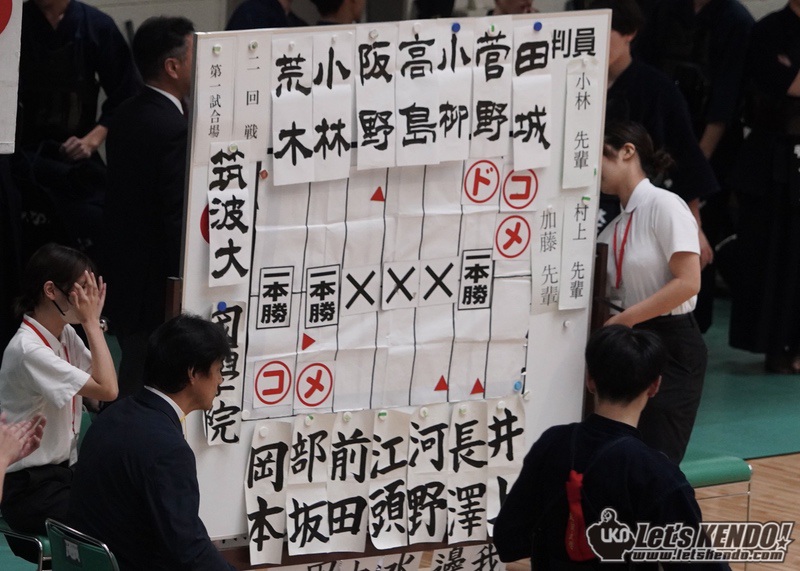 判員
小林 先輩
村上 先輩
加藤 先輩
田城
菅野
小柳
高島
阪野
小林
荒木
二回戦
第一試合場
筑波大
ド
コ
メ
一本勝
一本勝
×
×
×
一本勝
コ
メ
学院
岡本
部坂
前田
江頭
河野
長澤
井
LKD
Let's KENDO!
www.letskendo.com